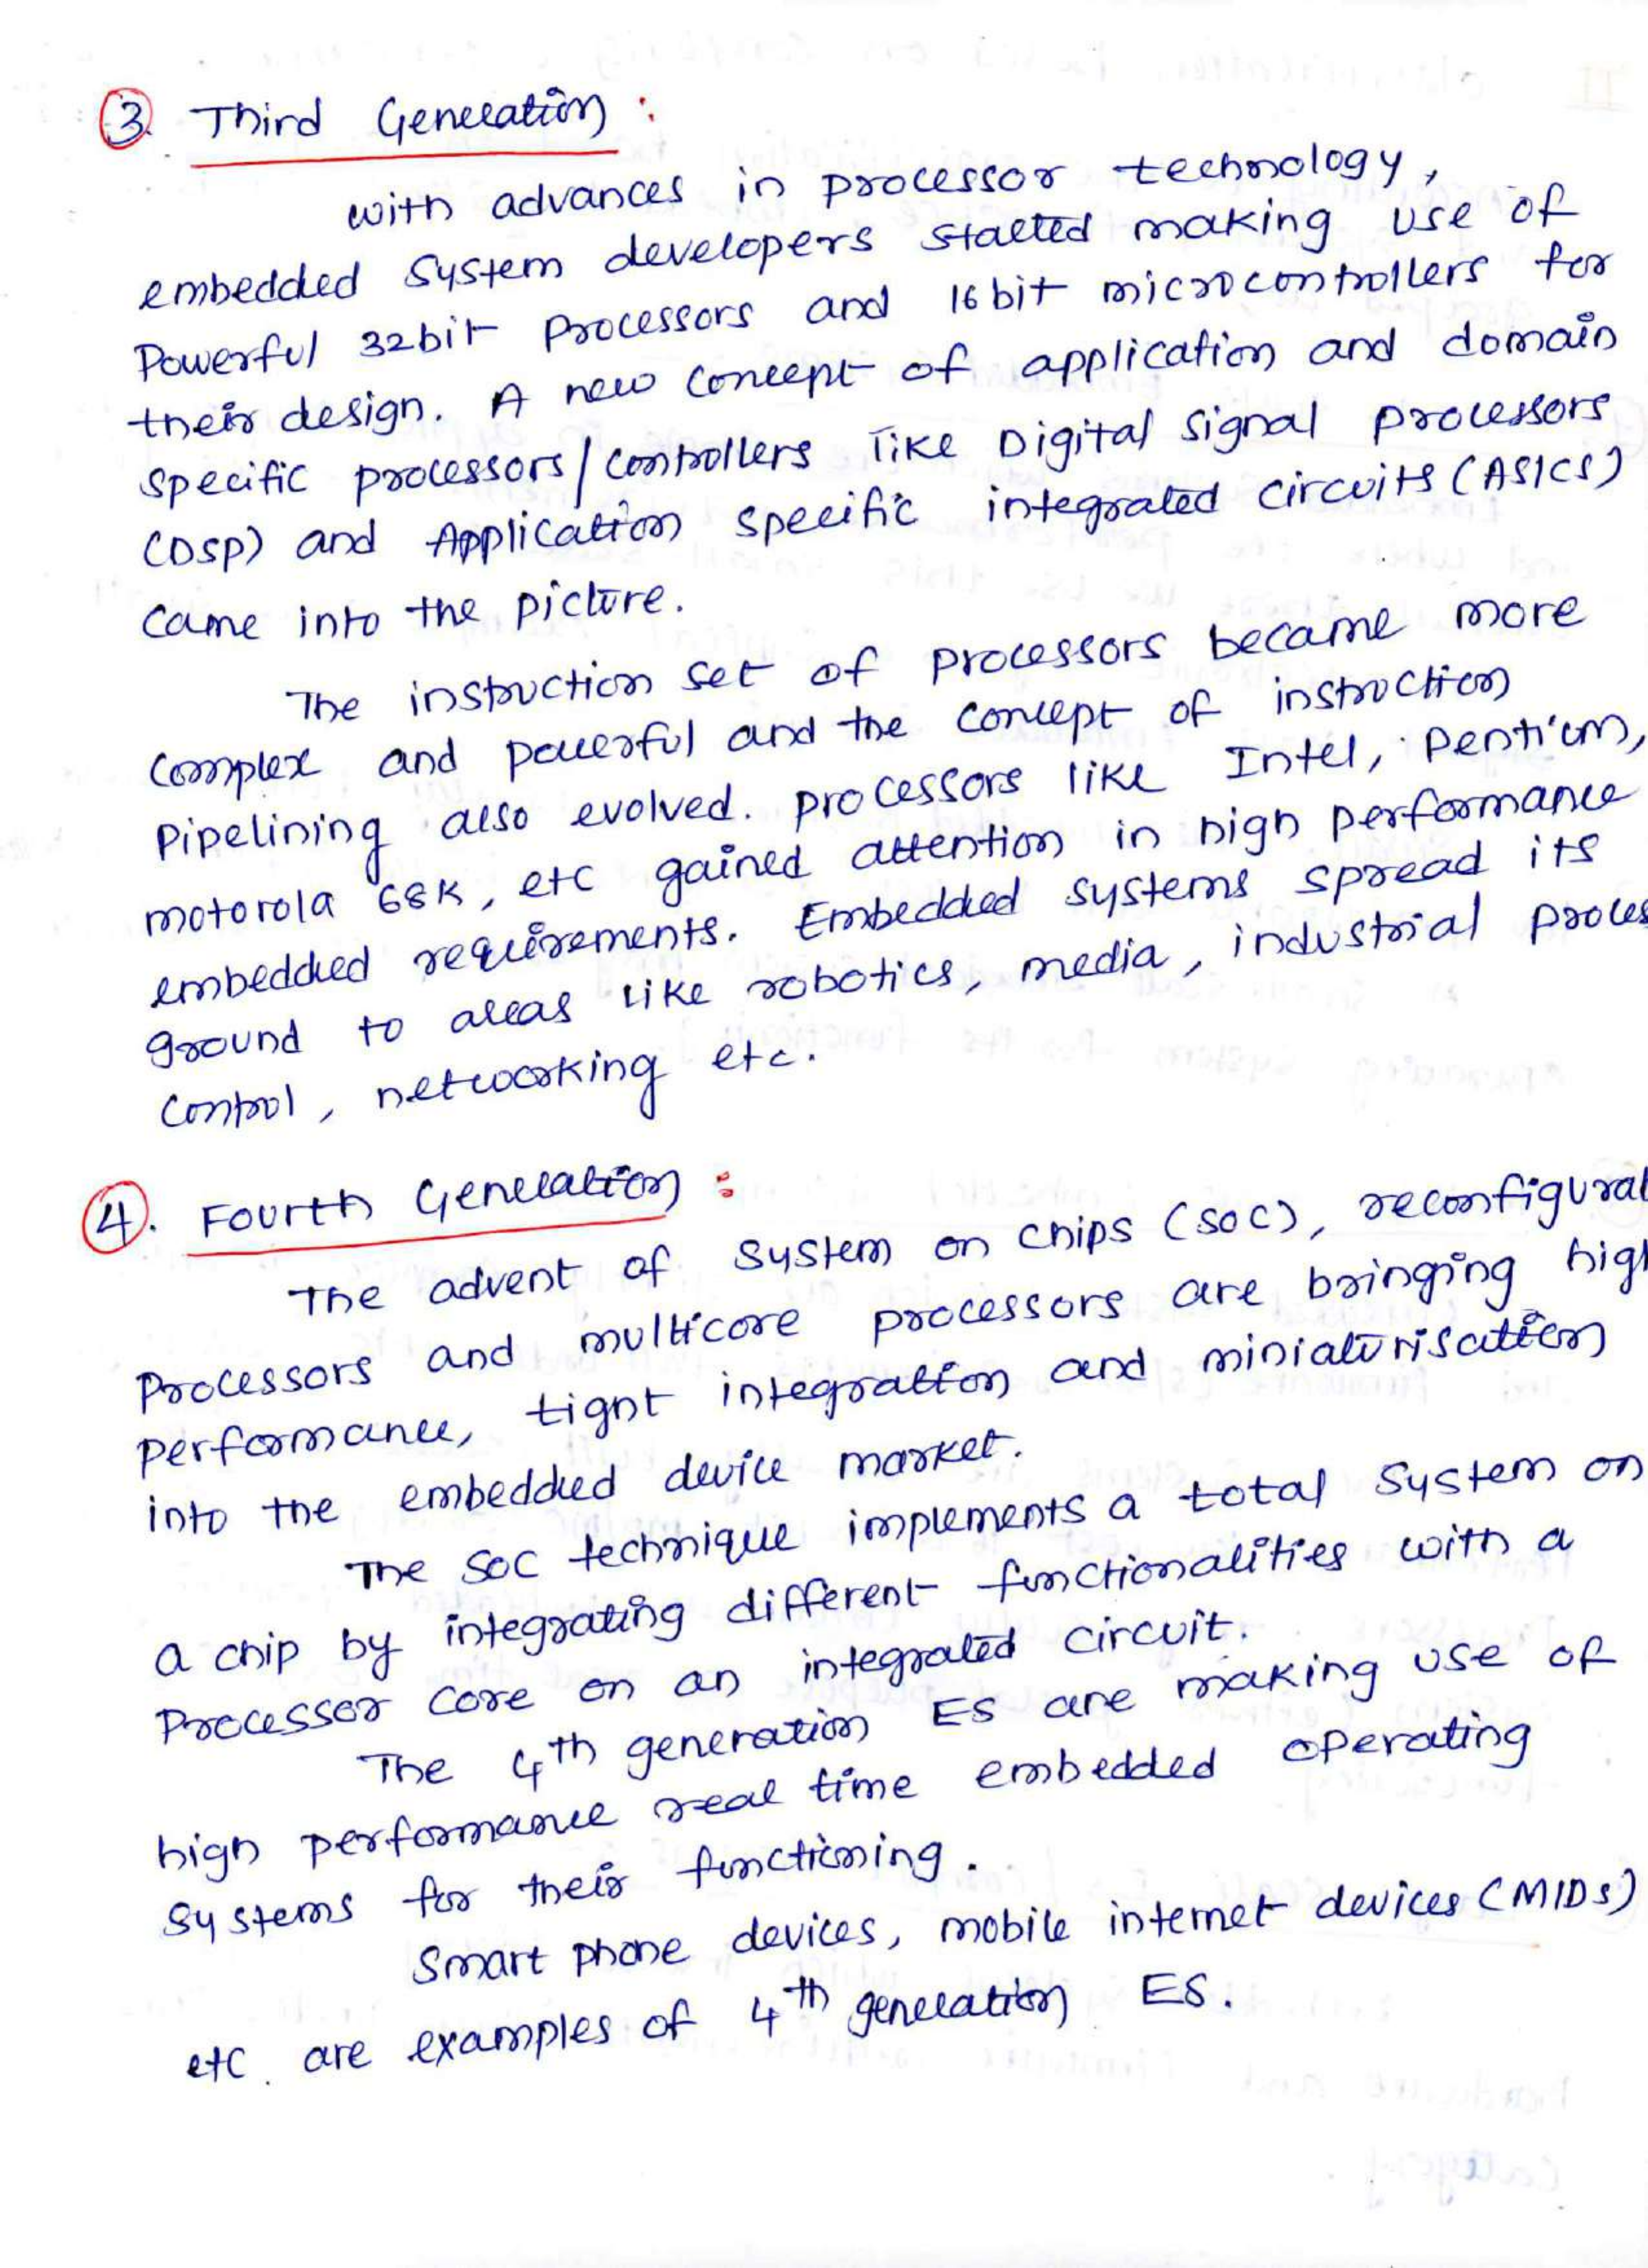 3. Third Generation :
with advances in processor technology,
embedded system developers started making use of
Powerful 32bit Processors and 16 bit microcontrollers for
their design. A new concept of application and domain
specific processors/controllers like Digital Signal processors
(DSP) and Application specific integrated circuits (ASICs)
came into the picture.
The instruction set of processors became more
complex and powerful and the concept of instruction
Pipelining also evolved. processors like Intel, Pentium,
motorola 68K, etc gained attention in high performance
embedded requirements. Embedded systems spread its
ground to areas like robotics, media, industrial proces
control, networking etc.
4. Fourth Generation :
The advent of System on chips (SOC), reconfigurab
Processors and multicore processors are bringing high
performance, tight integration and miniaturisation
into the embedded device market.
The SOC technique implements a total System on
a chip by integrating different functionalities with a
Processor core on an integrated circuit.
The 4th generation ES are making use of
high performance real time embedded operating
systems for their functioning.
Smart phone devices, mobile internet devices (MIDs)
etc. are examples of 4th generation ES.